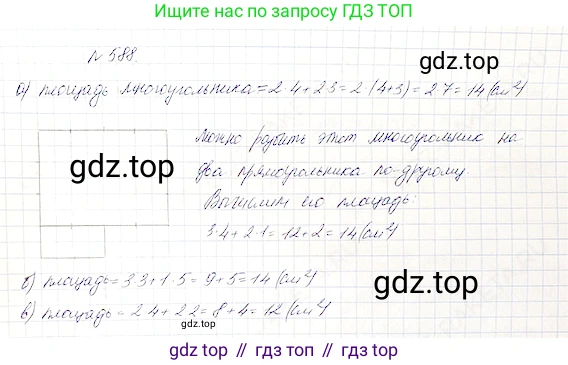 Ищите нас по запросу ГДЗ ТОП
№ 588.
gdz.top
а) площадь многоугольника = 2·4 + 2·3 = 2·(4+3) = 2·7 = 14 (см²)
Можно разбить этот многоугольник на
gdz.top
два прямоугольника по-другому.
Вычислим его площадь:
3·4 + 2·1 = 12 + 2 = 14 (см²)
б) площадь = 3·3 + 1·5 = 9 + 5 = 14 (см²)
gdz.top
в) площадь = 2·4 + 2·2 = 8 + 4 = 12 (см²)
gdz.top
gdz top // гдз топ // gdz.top